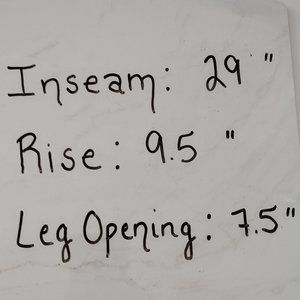 Inseam: 29"
Rise: 9.5"
Leg Opening: 7.5"